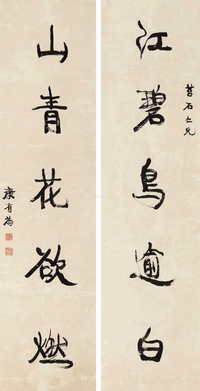 江碧鳥逾白
苔石仁兄
山青花欲燃
康有為